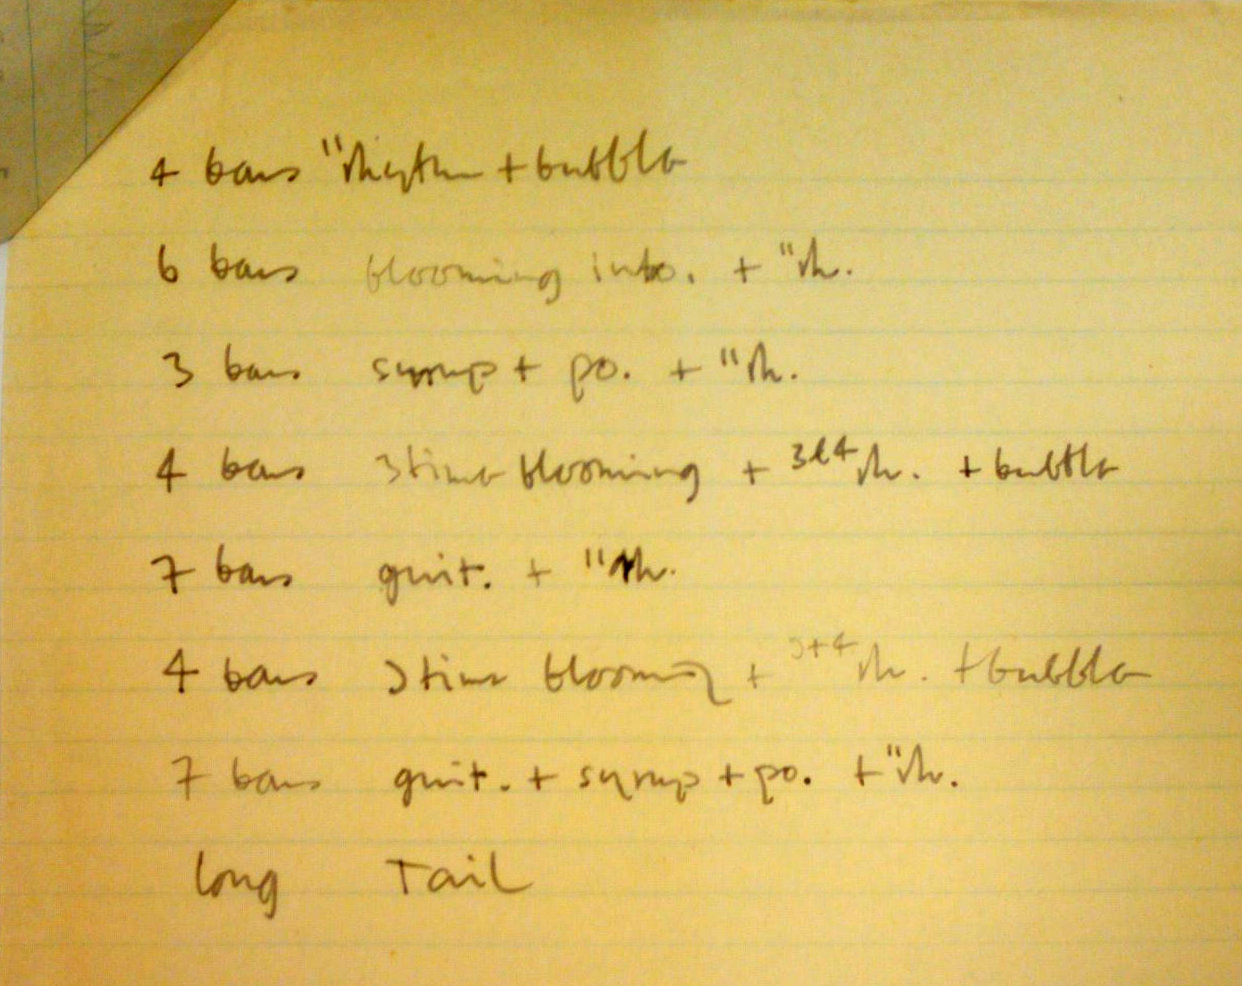 4 bars "rhythm + bubble
6 bars blooming into. + "rh.
3 bars syrup + po. + "rh.
4 bars 3 time blooming + 3&4 rh. + bubble
7 bars guit. + "rh.
4 bars 3 time blooming + 3+4 rh. + bubble
7 bars guit. + syrup + po. + "rh.
long Tail